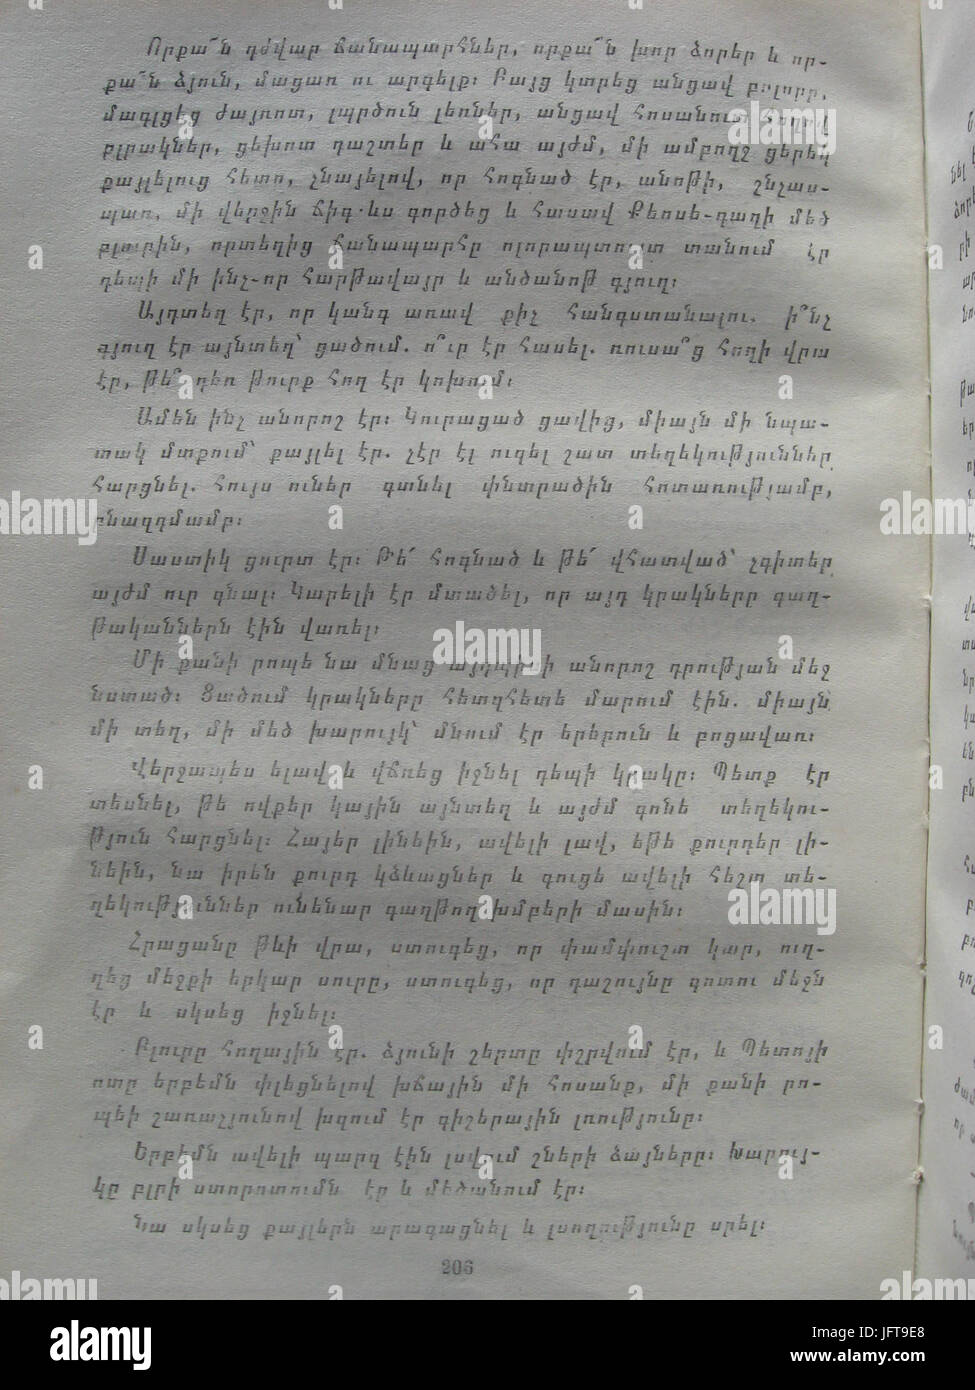 Որքա՜ն դժվար ճանապարհներ, որքա՜ն խոր ձորեր և որ-
քա՜ն ձյուն, մացառ ու արգելք։ Բայց կտրեց անցավ բոլորը,
մագլցեց ժայռոտ, լպրծուն լեռներ, անցավ հոսանուտ հողով
բլրակներ, ցեխոտ դաշտեր և ահա այժմ, մի ամբողջ ցերեկ
քայլելուց հետո, չնայելով, որ հոգնած էր, անոթի, շնչաս-
պառ, մի վերջին ճիգ ևս գործեց և հասավ Քեոսե-դաղի մեծ
բլուրին, որտեղից ճանապարհը ոլորապտույտ տանում էր
դեպի մի ինչ-որ հարթավայր և անծանոթ գյուղ։
Այդտեղ էր, որ կանգ առավ քիչ հանգստանալու. ի՞նչ
գյուղ էր այնտեղ՝ ցածում. ո՞ւր էր հասել. ռուսա՞ց հողի վրա
էր, թե՞ դեռ թուրք հող էր կոխում։
Ամեն ինչ անորոշ էր։ Կուրացած ցավից, միայն մի նպա-
տակ մտքում՝ քայլել էր. չէր էլ ուզել շատ տեղեկություններ
հարցնել. հույս ուներ գտնել փնտրածին հոտառությամբ,
բնազդմամբ։
Սաստիկ ցուրտ էր։ Թե՛ հոգնած և թե՛ վհատված՝ չգիտեր
այժմ ուր գնալ։ Կարելի էր մտածել, որ այդ կրակները գաղ-
թականներն էին վառել։
Մի քանի րոպե նա մնաց այդպիսի անորոշ դրության մեջ
նստած։ Ցածում կրակները հետզհետե մարում էին. միայն
մի տեղ, մի մեծ խարույկ՝ մնում էր երերուն և բոցավառ։
Վերջապես ելավ և վճռեց իջնել դեպի կրակը։ Պետք էր
տեսնել, թե ովքեր կային այնտեղ և այժմ գոնե տեղեկու-
թյուն հարցնել։ Հայեր լինեին, ավելի լավ, եթե քուրդեր լի-
նեին, նա իրեն քուրդ կձևացներ և գուցե ավելի հեշտ տե-
ղեկություններ ունենար գաղթող խմբերի մասին։
Հրացանը թևի վրա, ստուգեց, որ փամփուշտ կար, ուղ-
ղեց մեջքի երկար սուրը, ստուգեց, որ դաշույնը գոտու մեջն
էր և սկսեց իջնել։
Բլուրը հողային էր. ձյունի շերտը փշրվում էր, և Պետոյի
ոտը երբեմն փլեցնելով խճային մի հոսանք, մի քանի րո-
պեի շառաչյունով խզում էր գիշերային լռությունը։
Երբեմն ավելի պարզ էին լսվում շների ձայները։ Խարույ-
կը բլրի ստորոտումն էր և մեծանում էր։
Նա սկսեց քայլերն արագացնել և լսողությունը սրել։
206
alamy
JFT9E8
www.alamy.com